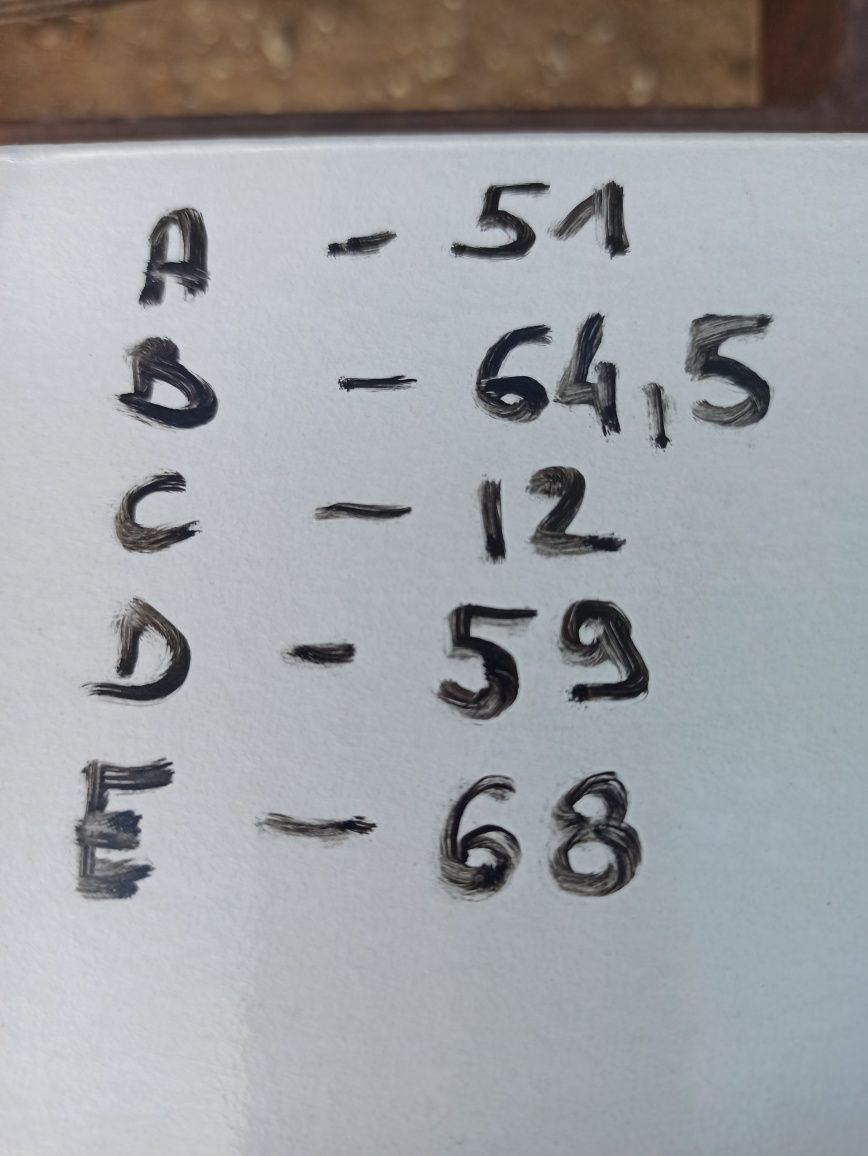 A - 51
B - 64,5
C - 12
D - 59
E - 68